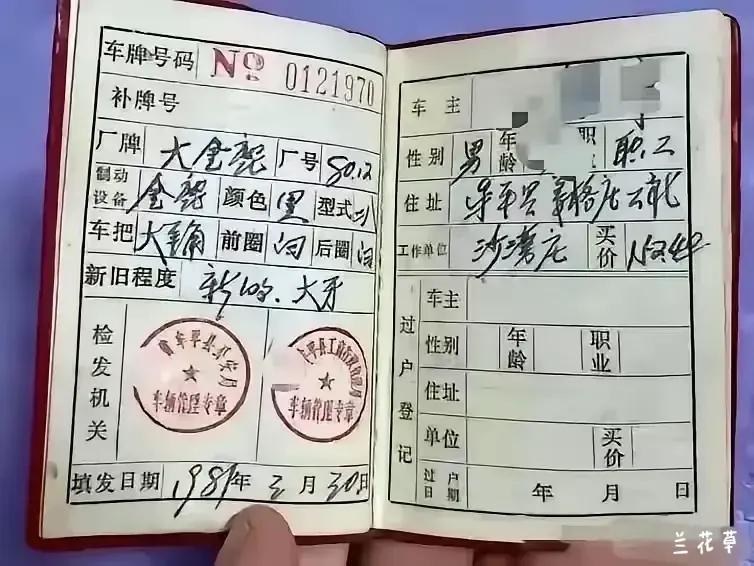 车牌号码 No 0121970
补牌号
厂牌 大金鹿 厂号 80.12
制动设备 金鹿 颜色 黑 型式
车把 前圈 后圈
新旧程度 大牙
检发机关
车平县
车辆管理专章
车辆管理专章
填发日期 1981年 三月 30日
车主
性别 男 年龄 职业 职工
住址
工作单位 沙湾庄 买价
过户登记
车主
性别 年龄 职业
住址
单位 买价
过户日期 年 月 日
兰花草